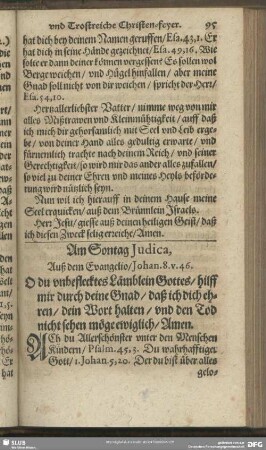 und Trostreiche Christen-feyer. 95
hat dich bey deinem Namen geruffen/ Esa. 43, 1. Er
hat dich in seine Hände gezeichnet/ Esa. 49, 16. Wie
solte er dann deiner können vergessen? Es sollen wol
Berge weichen/ und Hügel hinfallen/ aber meine
Gnad soll nicht von dir weichen/ spricht der Herr/
Esa. 54, 10.
Herzallerliebster Vatter/ nimme weg von mir
alles Mißtrawen und Kleinmühtigkeit/ auff daß
ich mich dir gehorsamlich mit Seel und Leib erge-
be/ von deiner Hand alles gedultig erwarte/ und
fürnemlich trachte nach deinem Reich/ und seiner
Gerechtigkeit/ so wird mir das ander alles zufallen/
so viel zu deiner Ehren und meines Heyls beförde-
rung wird nützlich seyn.
Nun wil ich hierauff in deinem Hause meine
Seel erquicken/ auß dem Brünnlein Israels.
Herr Jesu/ giesse auß deinen heiligen Geist/ daß
ich diesen Zweck selig erreiche/ Amen.
Am Sontag Judica,
Auß dem Evangelio/ Johan. 8. v. 46.
O du unbeflecktes Lämblein Gottes/ hilff
mir durch deine Gnad/ daß ich dich eh-
ren/ dein Wort halten/ und den Tod
nicht sehen möge ewiglich/ Amen.
ACh du Allerschönster unter den Menschen
Kindern/ Psalm. 45, 3. Du warhafftiger
Gott/ 1. Johan. 5, 20. Der du bist über alles
gelo-
SLUB
DFG